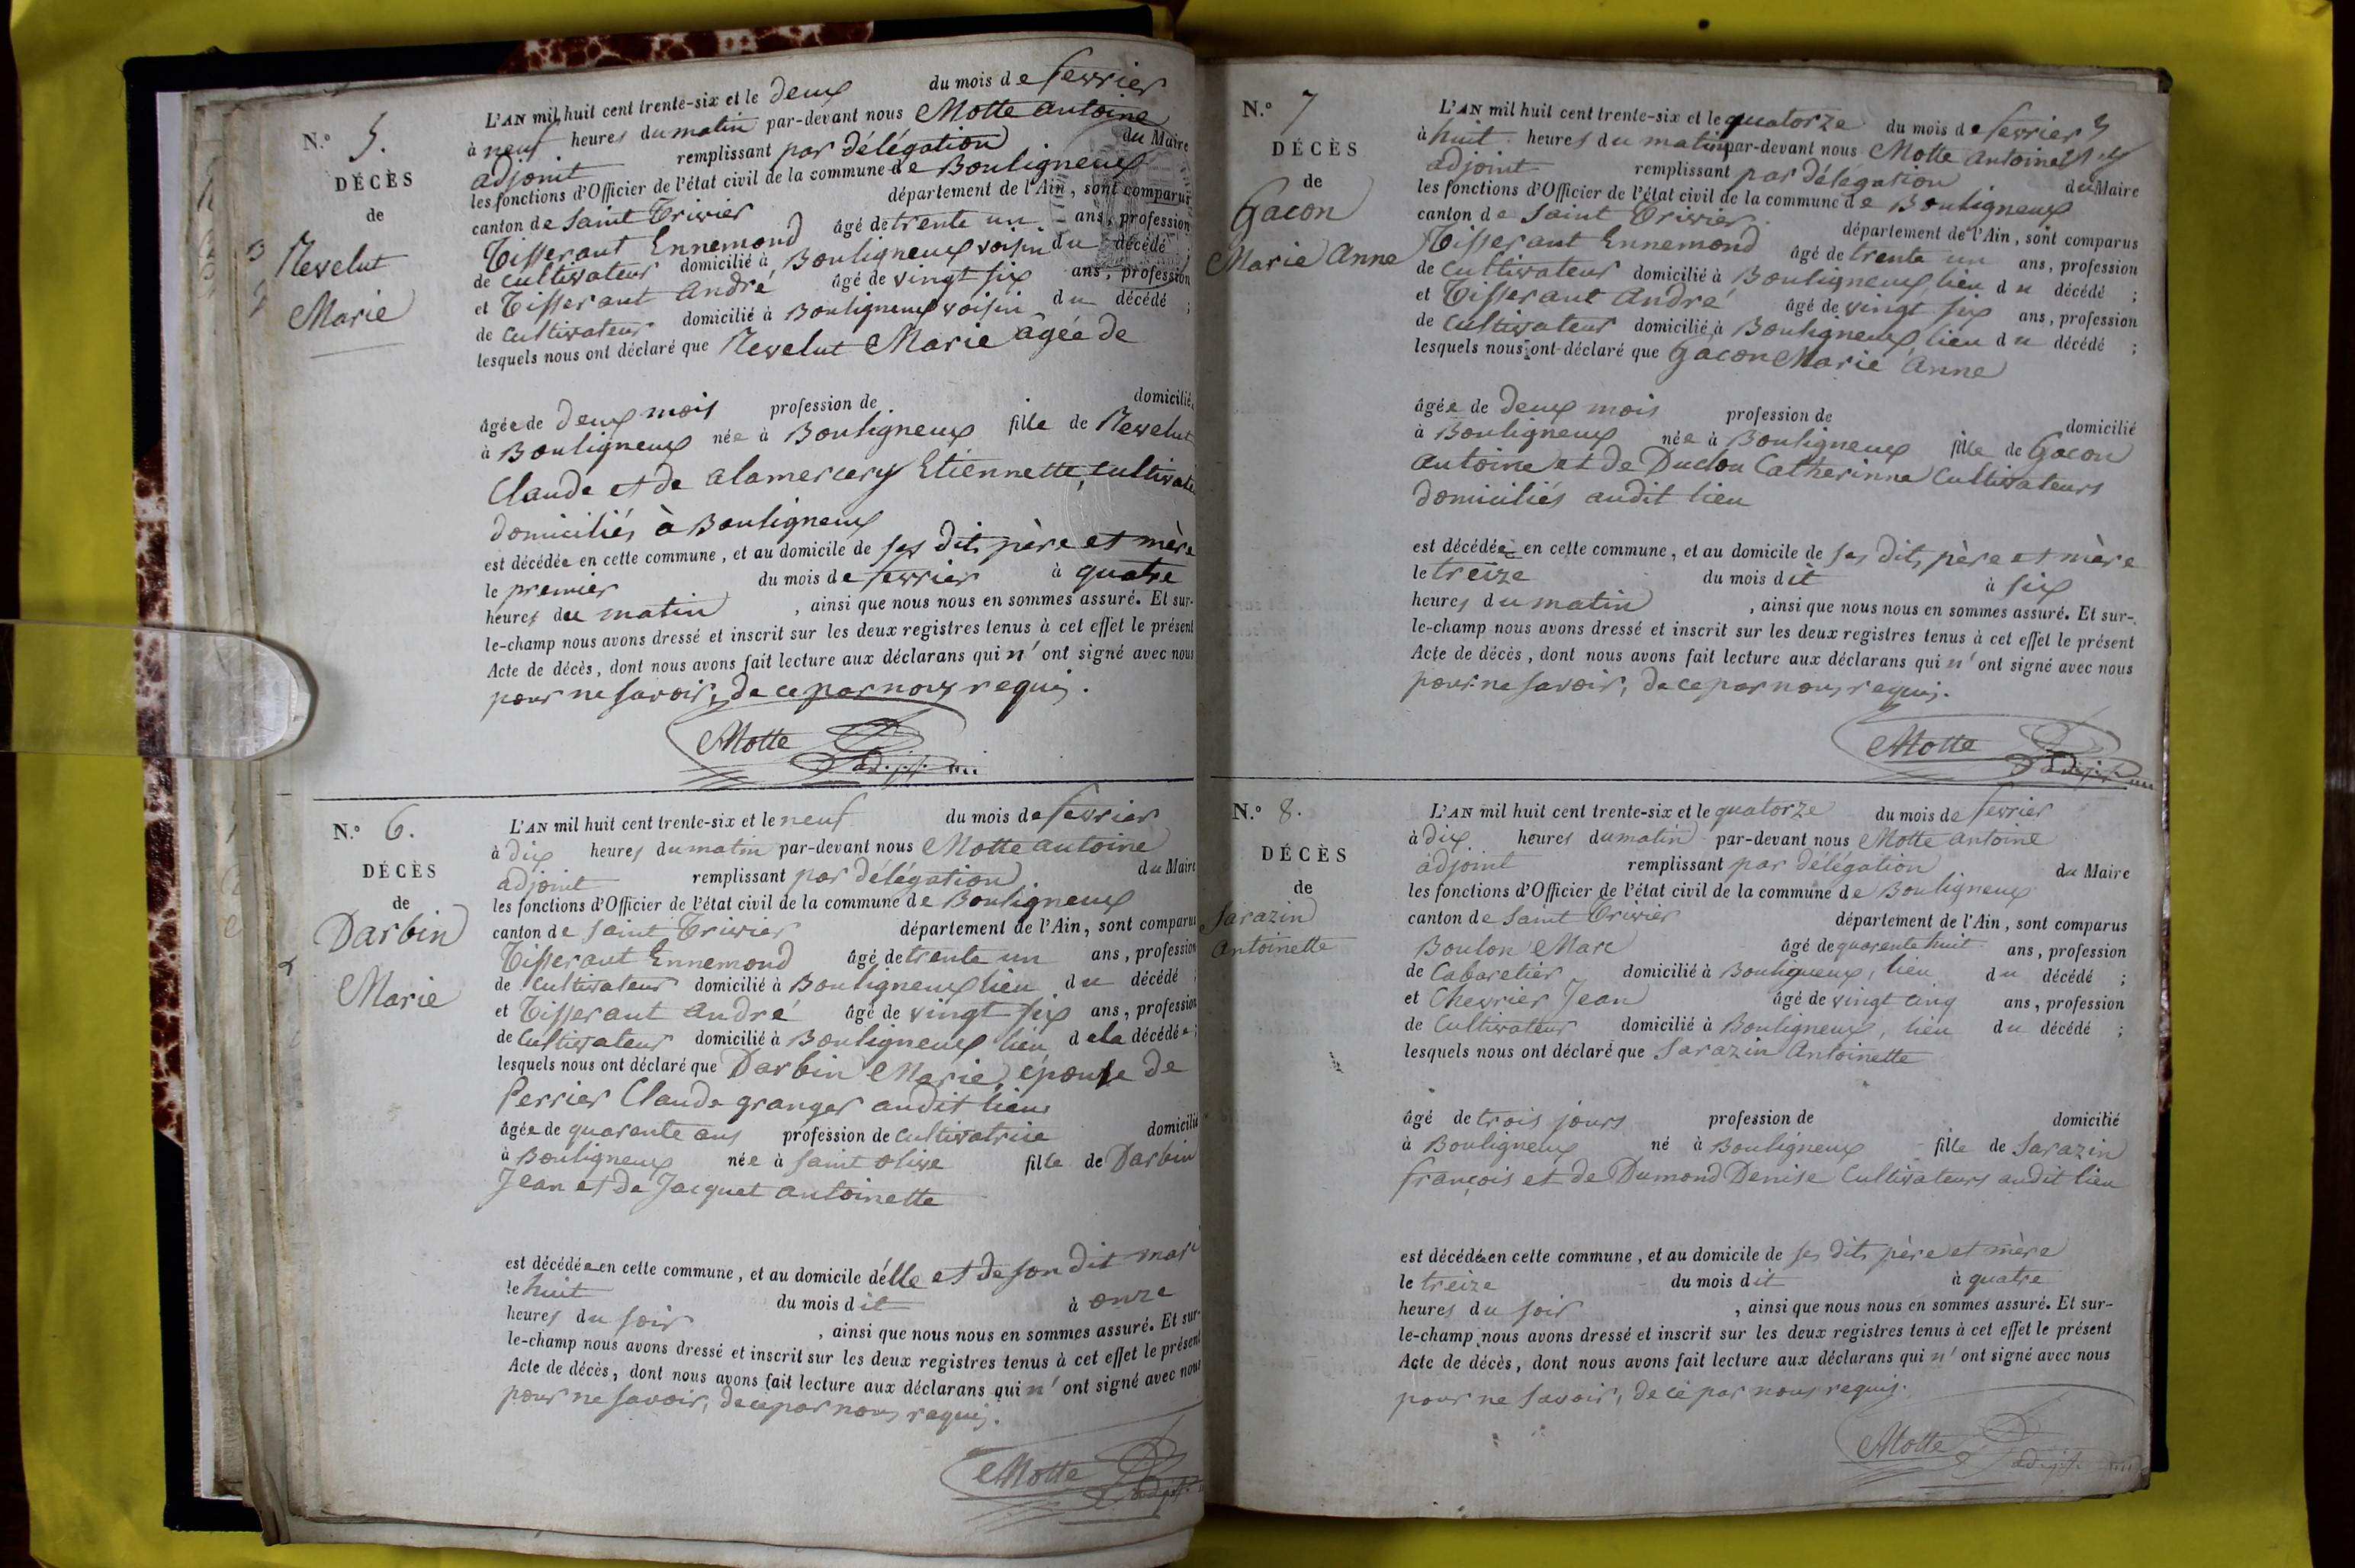 N.° 5.
DÉCÈS
de
Nevelut
Marie
L'AN mil huit cent trente-six et le deux du mois de fevrier
à neuf heures du matin par-devant nous Motte antoine
adjoint remplissant par délégation du Maire
les fonctions d'Officier de l'état civil de la commune de Bouligneux
canton de Saint Trivier département de l'Ain, sont comparus
Tisserant Ennemond âgé de trente un ans, profession
de Cultivateur domicilié à Bouligneux voisin du décédé
et Tisserant André âgé de vingt six ans, profession
de Cultivateur domicilié à Bouligneux voisin du décédé ;
lesquels nous ont déclaré que Nevelut Marie agée de
âgée de deux mois profession de domicilié
à Bouligneux née à Bouligneux fille de Nevelut
Claude et de alamercery Etiennette, Cultivate
domiciliés à Bouligneux
est décédée en cette commune, et au domicile de ses dits père et mère
le premier du mois de fevrier à quatre
heures du matin , ainsi que nous nous en sommes assuré. Et sur-
le-champ nous avons dressé et inscrit sur les deux registres tenus à cet effet le présent
Acte de décès, dont nous avons fait lecture aux déclarans qui n'ont signé avec nous
pour ne savoir, de ce par nous requis.
Motte
N.° 6.
DÉCÈS
de
Darbin
Marie
L'AN mil huit cent trente-six et le neuf du mois de fevrier
à dix heures du matin par-devant nous Motte antoine
adjoint remplissant par délégation du Maire
les fonctions d'Officier de l'état civil de la commune de Bouligneux
canton de Saint Trivier département de l'Ain, sont comparus
Tisserant Ennemond âgé de trente un ans, profession
de Cultivateur domicilié à Bouligneux lieu du décédé ;
et Tisserant André âgé de vingt six ans, profession
de Cultivateur domicilié à Bouligneux lieu de la décédée ;
lesquels nous ont déclaré que Darbin Marie, épouse de
Perrier Claude granger audit lieu
âgée de quarente ans profession de Cultivatrice domicilié
à Bouligneux née à Saint Olive fille de Darbin
Jean et de Jacquet antoinette
est décédée en cette commune, et au domicile d'elle et de son dit mari
le huit du mois dit à onze
heures du soir , ainsi que nous nous en sommes assuré. Et sur-
le-champ nous avons dressé et inscrit sur les deux registres tenus à cet effet le présent
Acte de décès, dont nous avons fait lecture aux déclarans qui n'ont signé avec nous
pour ne savoir, de ce par nous requis.
Motte
N.° 7
DÉCÈS
de
Gacon
Marie Anne
L'AN mil huit cent trente-six et le quatorze du mois de fevrier
à huit heures du matin par-devant nous Motte antoine
adjoint remplissant par délégation du Maire
les fonctions d'Officier de l'état civil de la commune de Bouligneux
canton de Saint Trivier département de l'Ain, sont comparus
Tisserant Ennemond âgé de trente un ans, profession
de Cultivateur domicilié à Bouligneux, lieu du décédé ;
et Tisserant André âgé de vingt six ans, profession
de Cultivateur domicilié à Bouligneux, lieu du décédé ;
lesquels nous ont déclaré que Gacon Marie Anne
âgée de deux mois profession de domicilié
à Bouligneux née à Bouligneux fille de Gacon
antoine et de Duclou Catherinne Cultivateurs
domiciliés audit lieu
est décédée en cette commune, et au domicile de ses dits père et mère
le treize du mois dit à six
heures du matin , ainsi que nous nous en sommes assuré. Et sur-
le-champ nous avons dressé et inscrit sur les deux registres tenus à cet effet le présent
Acte de décès, dont nous avons fait lecture aux déclarans qui n'ont signé avec nous
pour ne savoir, de ce par nous requis.
Motte
N.° 8.
DÉCÈS
de
Sarazin
Antoinette
L'AN mil huit cent trente-six et le quatorze du mois de fevrier
à dix heures du matin par-devant nous Motte antoine
adjoint remplissant par délégation du Maire
les fonctions d'Officier de l'état civil de la commune de Bouligneux
canton de Saint Trivier département de l'Ain, sont comparus
Bouton Marc âgé de quarente huit ans, profession
de Cabaretier domicilié à Bouligneux, lieu du décédé ;
et Chevrier Jean âgé de vingt cinq ans, profession
de Cultivateur domicilié à Bouligneux, lieu du décédé ;
lesquels nous ont déclaré que Sarazin Antoinette
âgé de trois jours profession de domicilié
à Bouligneux né à Bouligneux fille de Sarazin
françois et de Dumond Denise Cultivateurs audit lieu
est décédée en cette commune, et au domicile de ses dits père et mère
le treize du mois dit à quatre
heures du soir , ainsi que nous nous en sommes assuré. Et sur-
le-champ nous avons dressé et inscrit sur les deux registres tenus à cet effet le présent
Acte de décès, dont nous avons fait lecture aux déclarans qui n'ont signé avec nous
pour ne savoir, de ce par nous requis.
Motte